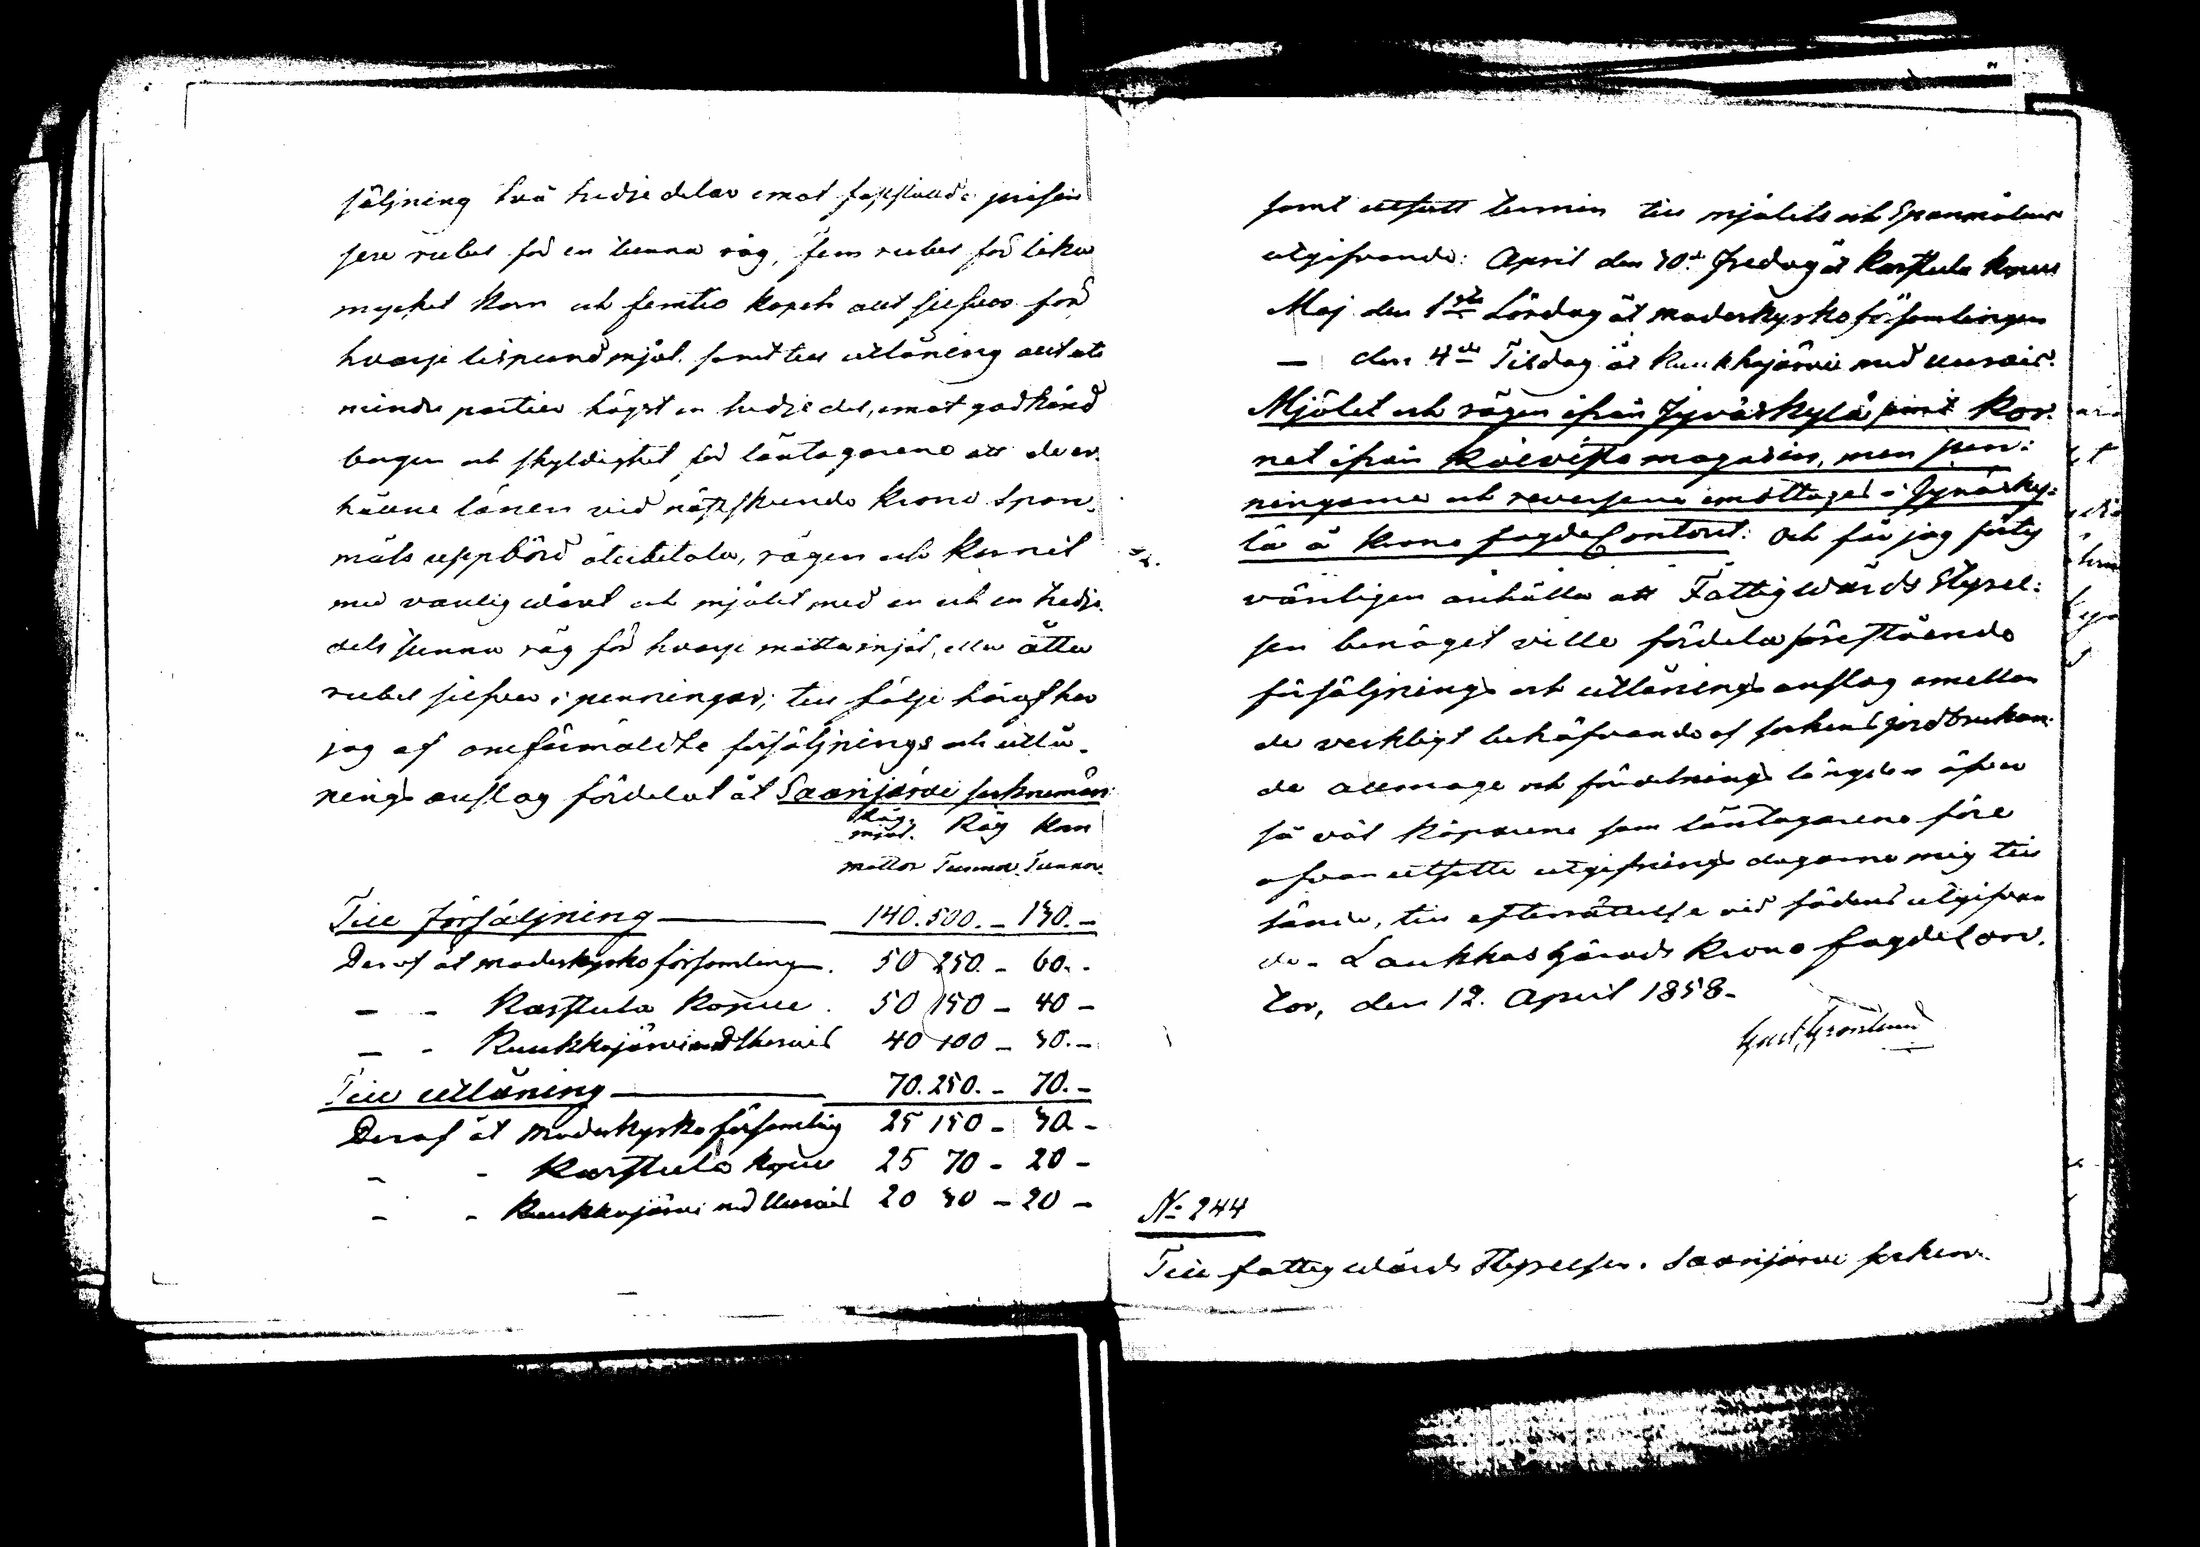 säljning två tredje delar emot fastställde prisen
sex rubel för en tunna råg, fem rubel för lika
mycket korn och femtio kopek allt silfver för
hvarje lispund mjöl, samt till utlåning allt uti
mindre partier högst en tredje del, emot godkänd
borgen och skyldighet för låntagarene att de er-
hållne lånen vid nästskeende Krono Span-
måls uppbörd återbetala, rågen och Kornet
med vanlig wäxt och mjölet med en och en tredje-
dels tunna råg för hvarje matta mjöl, eller åtta
rubel silfver i penningar; till följe häraf har
jag af omförmäldte försäljnings och utlå-
nings anslag fördelat åt Saarijärvi socknemän:
Råg-
mjöl. Råg Korn
mattor Tunnor. Tunnor.
Till försäljning 140. 500. - 130. -
Deraf åt moderkyrko församlingen. 50 250. - 60. -
- - Karstula Kapell. 50 150 - 40 -
- - Kuukkajärvi med Uurais 40 100 - 30. -
Till utlåning 70. 250. - 70. -
Deraf åt moderkyrko församling 25 150 - 30. -
- - Karstula Kapell 25 70 - 20 -
- - Kuukkajärvi med Uurais 20 30 - 20 -
samt utsatt termin till mjölets och Spanmålens
utgifvande: April den 30de Fredag åt Karstula Kapell
Maj den 1sta Lördag åt moderkyrko församlingen
- den 4de Tisdag åt Kuukkajärvi med Uurais.
Mjölet och rågen ifrån Jyväskylä samt Kor-
net ifrån Koivisto magasin, men pen-
ningarne och reverserne emottages i Jyväsky-
lä å Krono fogde Contoret: Och får jag
vänligen anhålla att Fattigwårds Styrel-
sen benäget ville fördela förestående
försäljnings och utlånings anslag emellan
de verkligt behöfvande af sockens jordbrukan-
de allmoge och fördelnings längden öfver
så väl Köparene som låntagarene före
ofvan utsatte utgifnings dagarne mig till
sända, till efterrättelse vid sädens utgifvan
de. Laukkas Härads Krono fogde Con-
tor, den 12. April 1858.
Grönlund
No 244
Till fattigwårds Styrelsen i Saarijärvi socken.